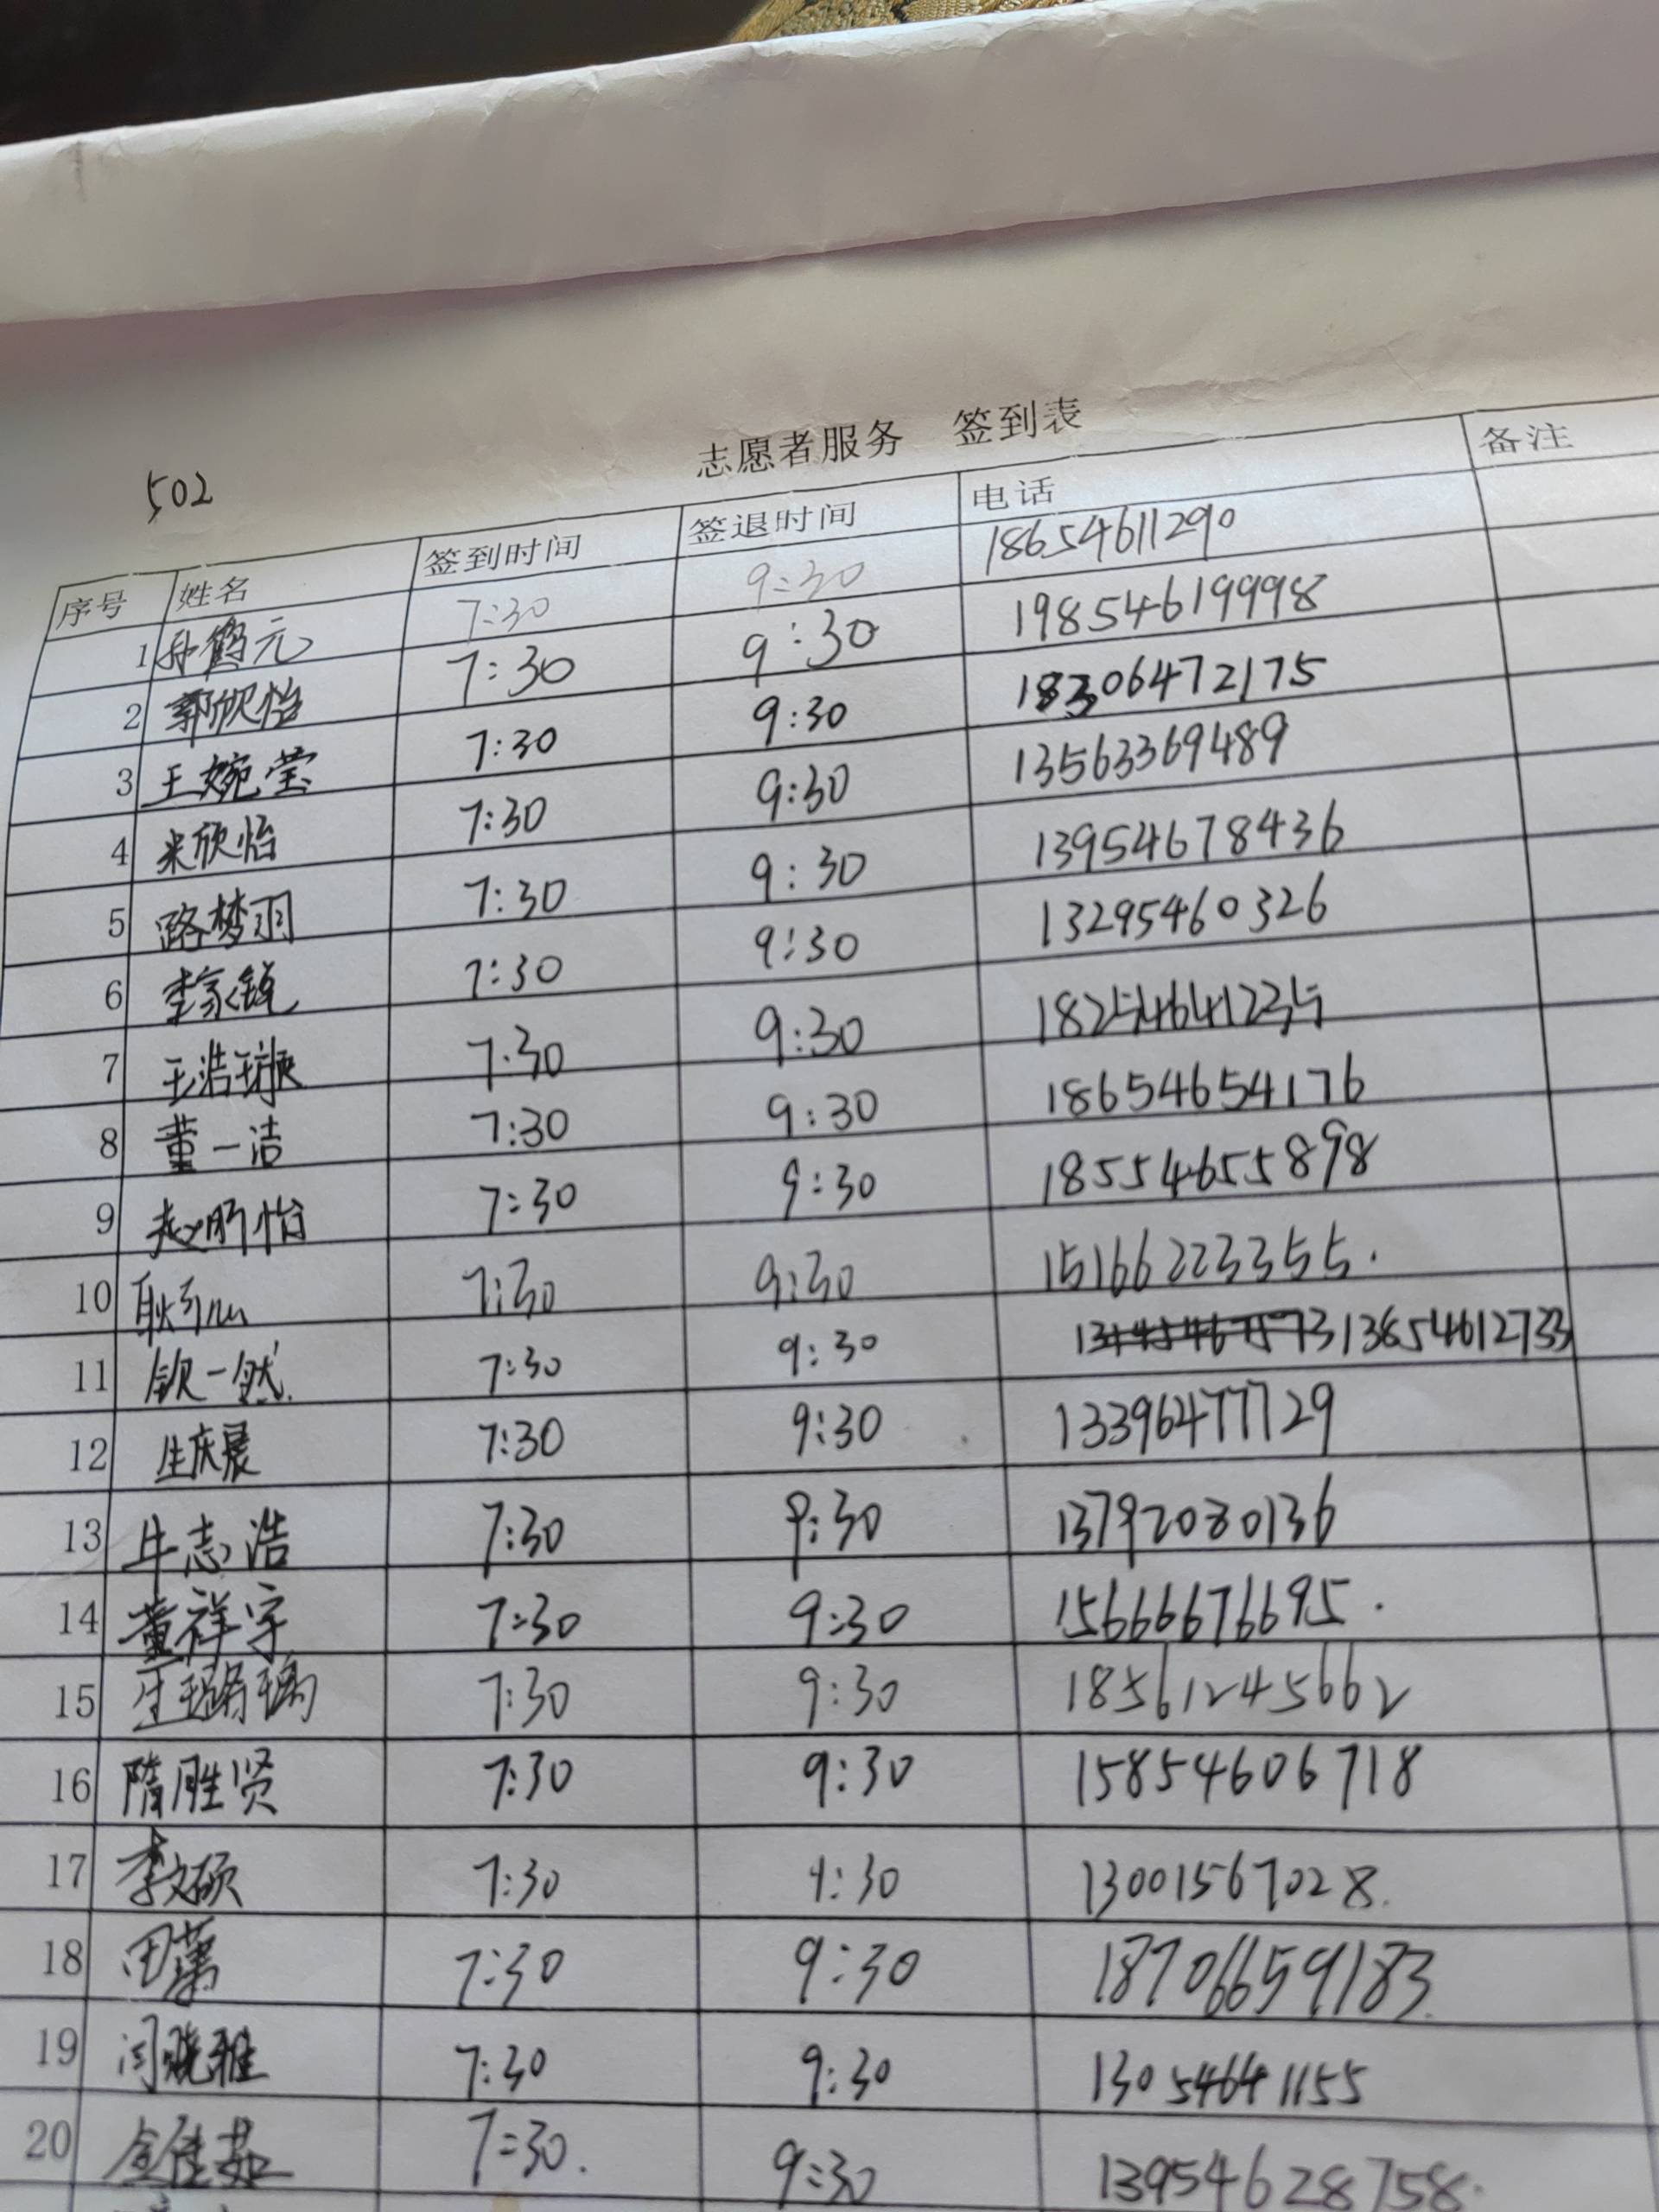 志愿者服务 签到表
502
序号 姓名 签到时间 签退时间 电话 备注
1 孙鹤元 7:30 9:30 18654611290
2 郭欣怡 7:30 9:30 198546199998
3 王婉莹 7:30 9:30 18306472175
4 米欣怡 7:30 9:30 13563369489
5 路梦羽 7:30 9:30 13954678436
6 李家锐 7:30 9:30 13295460326
7 王浩 7:30 9:30 18254641235
8 董一洁 7:30 9:30 18654654176
9 赵昕怡 7:30 9:30 18554655898
10 7:30 9:30 15166223355.
11 钦一然 7:30 9:30 13854612733
12 生庆晨 7:30 9:30 13396477729
13 牛志浩 7:30 9:30 13792080136
14 董祥宇 7:30 9:30 15666676695.
15 7:30 9:30 18561245662
16 隋胜贤 7:30 9:30 15854606718
17 李文硕 7:30 9:30 13001567028.
18 田 7:30 9:30 18706659183.
19 闫晓雅 7:30 9:30 13054641155
20 7:30. 9:30 13954628758.